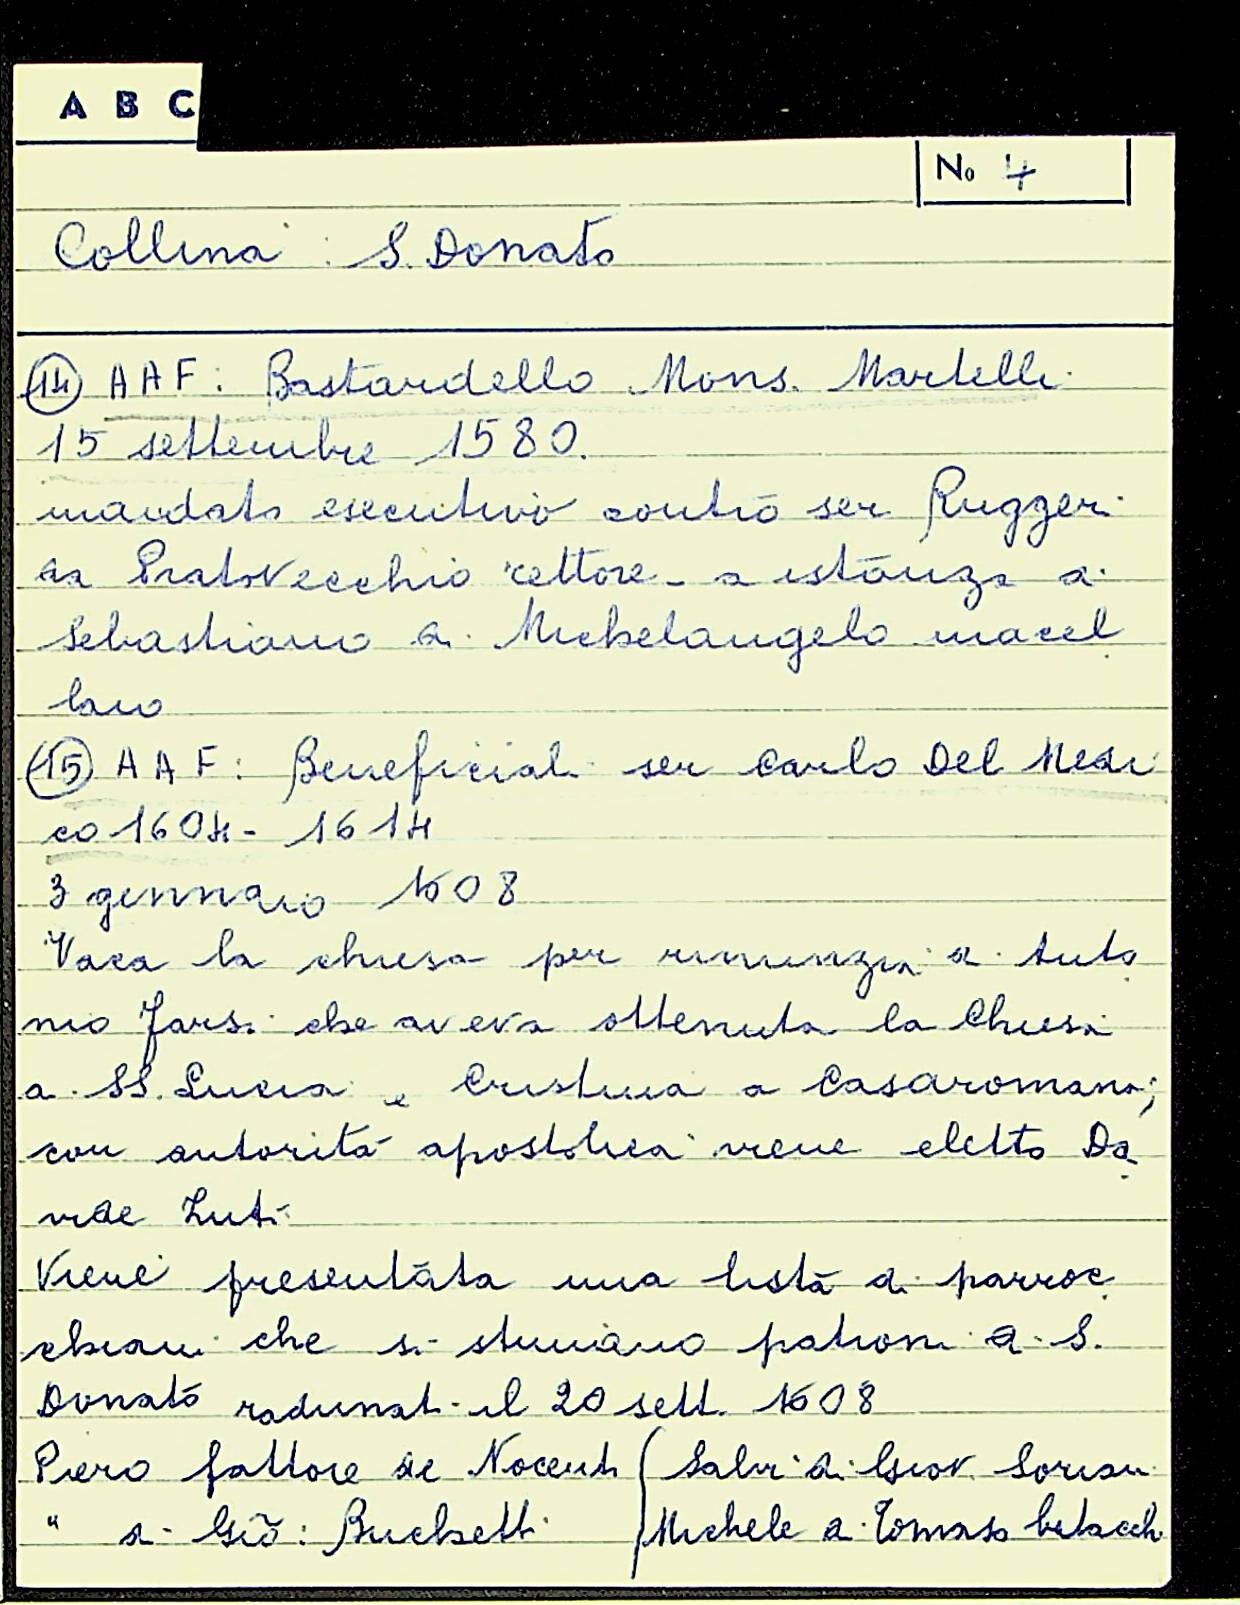 A B C
No 4
Collina : S. Donato
14 AAF: Bastardello Mons. Martelli
15 settembre 1580.
mandato esecutivo contro ser Ruggeri
da Pratovecchio rettore a istanza di
Sebastiano di Michelangelo macel
laio
15 AAF: Beneficiali ser Carlo Del Medi
co 1604 - 1614
3 gennaio 1608
Vaca la chiesa per rinunzia di Anto
nio Farsi che aveva ottenuta la Chiesa
di SS. Lucia e Cristina a Casaromana;
con autorità apostolica viene eletto Da
vide Luti
Viene presentata una lista di parroc
chiani che si stimano patroni di S.
Donato radunati il 20 sett. 1608
Piero fattore de Nocenti / Salvi di Giov. Soriani
" di Giõ: Buchetti / Michele di Tomaso